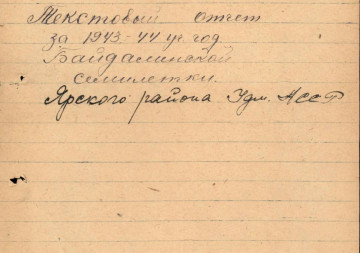 Текстовый отчет
за 1943-44 уч. год
Байдалинской
семилетки.
Ярского района Удм. АССР